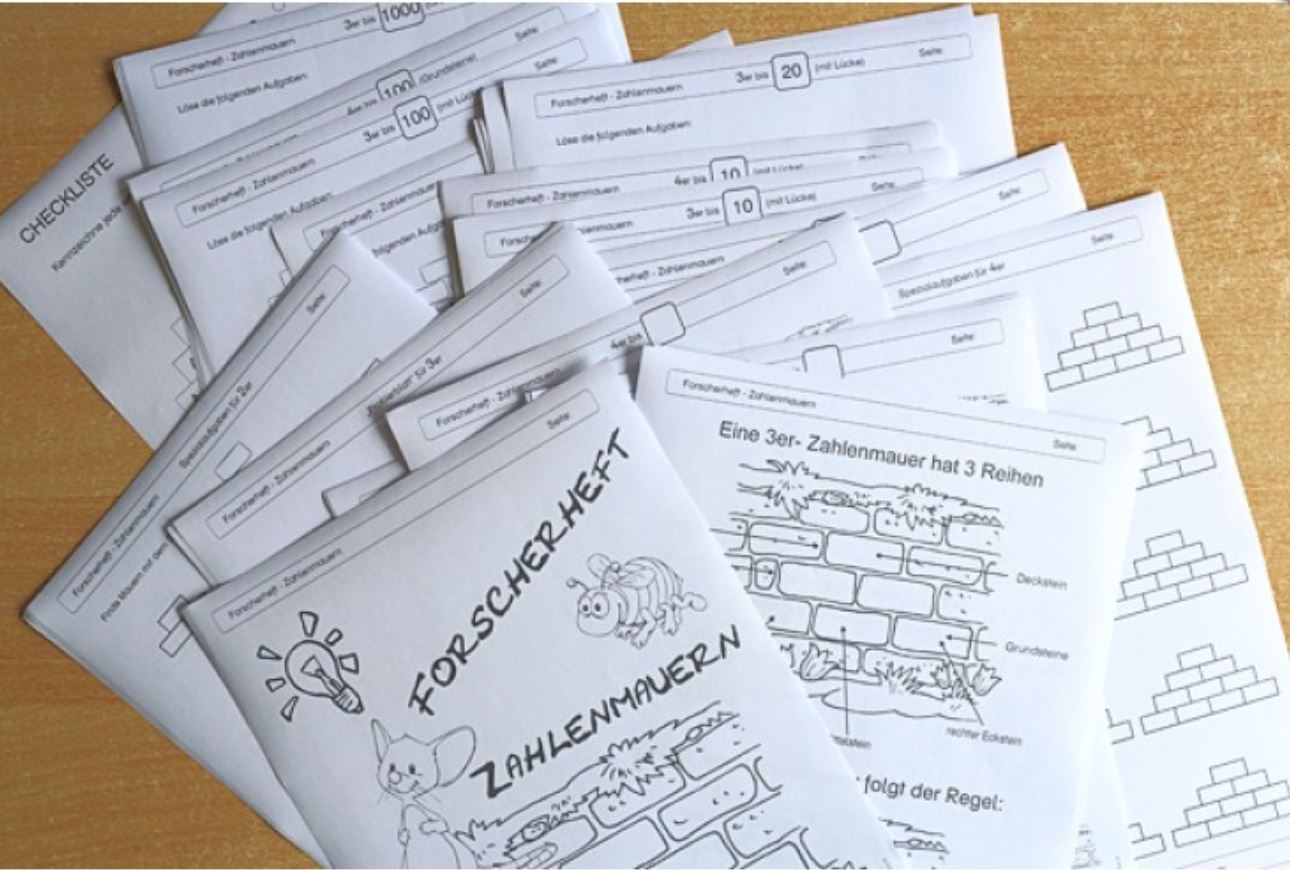 3er bis 1000
Forscherheft - Zahlenmauern
Löse die folgenden Aufgaben:
Seite:
4er bis 100 (Grundsteine)
Seite:
3er bis 100 (mit Lücke)
Forscherheft - Zahlenmauern
Löse die folgenden Aufgaben:
CHECKLISTE
Kennzeichne jede
Forscherheft - Zahlenmauern
folgenden Aufgab
Forscherheft - Zahlenmauern
3er bis 20 (mit Lücke)
Seite:
Löse die folgenden Aufgaben:
Forscherheft - Zahlenmauern
4er bis 10 (mit Lücke)
Forsch
Zahlenmauern
3er bis 10 (mit Lücke)
Seite:
herheft - Zahlenmauern
Seite:
Spezialaufgaben für 4er
Seite:
Forscherheft - Zahlenmauern
Spezialaufgaben für 2er
Seite:
Finde Mauern mit dem
Forscherheft - Zahlenmauern
für 3er
Seite:
Forscherheft - Zahlenmauern
4er bis
Seite:
Seite:
Forscherheft - Zahlenmauern
Seite:
FORSCHERHEFT
ZAHLENMAUERN
Forscherheft - Zahlenmauern
Seite:
Eine 3er- Zahlenmauer hat 3 Reihen
Deckstein
Grundsteine
ttelstein
rechter Eckstein
folgt der Regel: